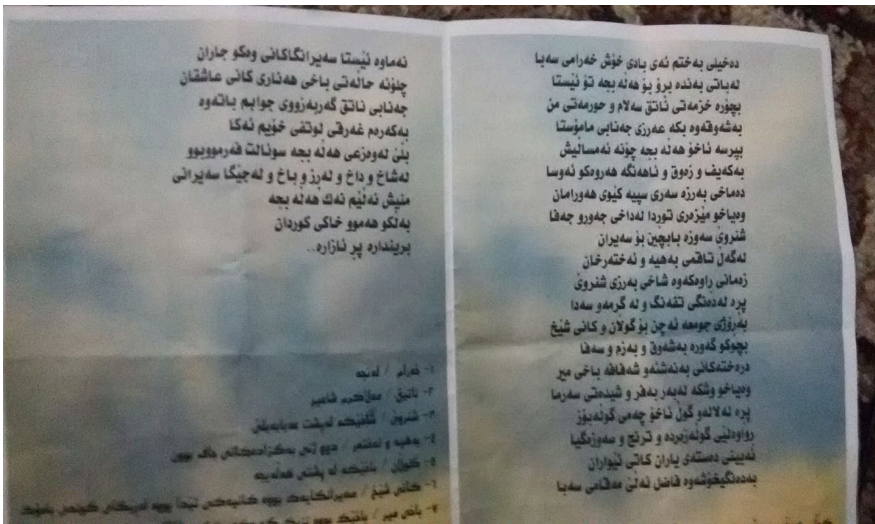 دەخیلی بەختم ئەی بادی خۆش خەرامی سەبا
لەباتی بەندە برۆ بۆ هەڵە بجە تۆ ئێستا
بچۆرە خزمەتی ناتق سەلام و حورمەتی من
بەشەوقەوە بکە عەرزی جەنابی مامۆستا
بپرسە ئاخۆ هەڵە بجە چۆنە ئەمساڵیش
بەکەیف و زەوق و ئاهەنگە هەروەکو ئەوسا
دەماخی بەرزە سەری سپیە کێوی هەورامان
وەیاخو مێزەری توردا لەداخی جەورو جەفا
شنروێ سەوزە بابچین بۆ سەیران
لەگەڵ تاقمی بەهیە و ئەختەرخان
زەمانی ڕاوەکەوە شاخی بەرزی شنروێ
پڕە لەدەنگی تفەنگ و لە گرمەو سەدا
بەڕۆژی جومعە ئەچن بۆ گولان و کانی شێخ
بچوکو گەورە بەشەوق و بەزم و سەفا
درەختەکانی بەنەشئەو شەفافە باخی میر
وەیاخو وشکە لەبەر بەفر و شیدەتی سەرما
پڕە لەلالەو گوڵ ئاخۆ چەمی گوڵەبۆز
ڕواوەلێی گوڵەزەردە و ترنج و سەوزەگیا
ئەبینی دەستەی یاران کاتی ئێواران
بەدەنگیخۆشەوە فازڵ ئەڵێ مەقامی سەبا
نەماوە ئێستا سەیرانگاکانی وەکو جاران
چلۆنە حاڵەتی باخی هەناری کانی عاشقان
جەنابی ناتق گەربەزووی جوابم باتەوە
بەکەرەم غەرقی لوتفی خۆیم ئەکا
بڵێ لەوەزعی هەڵە بجە سوئالت فەرمووبوو
لەشاخ و داخ و لەرز و باخ و لەجێگا سەیرانی
منیش ئەڵێم نەك هەڵە بجە
بەڵکو هەموو خاکی کوردان
بریندارە پڕ ئازارە..
١- خەرام / لەنجە
٢- ناتیق /
٣- شنروێ /
٤- بەهیە و ئەختەر / دوو ژنی بەگزادەکانی بوون
٥- گوڵان / باخێکە لە پشتی هەڵەبجە
٦- کانی شێخ / سەیرانگایەک بووە کانیەکی تێدا بووە
٧- باخی میر / باخێک بووە